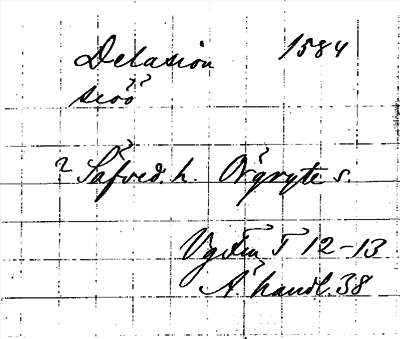 Delasion 1584
seoö??
? Säfved. h. Örgryte s.
Vg Fin T 12-13
Ä. handl. 38